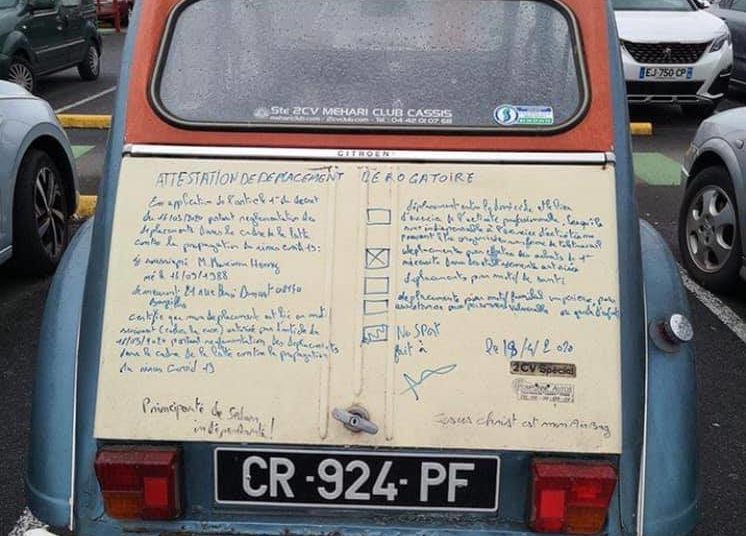 Ste 2CV MEHARI CLUB CASSIS
mehariclub.com / 2cvclub.com / Tel : 04 42 01 07 68
EJ 750 CP
CITROËN
ATTESTATION DE DEPLACEMENT DEROGATOIRE
En application de l'article 1er du decret
du 16/03/2020 portant reglementation des
deplacements dans le cadre de la lutte
contre la propagation du virus covid-19:
Je soussigné M. Henry
né le 16/09/1988
demeurant 21 rue 08170
certifie que mon deplacement est lié au motif
suivant (cocher la case) autorisé par l'article du
16/03/2020 portant reglementation des deplacements
dans le cadre de la lutte contre la propagation
du virus Covid 19
Principauté de Sedan
indépendante!
déplacements entre le domicile et le lieu
d'exercice de l'activité professionnelle, lorsqu'ils
sont indispensables à l'exercice d'activités
deplacements pour effectuer des achats de 1ère
nécessité dans les établissements autorisés
deplacements pour motif de santé
deplacements pour motif familial impérieux, pour
assistance aux personnes vulnérables ou garde d'enfant
No SPORT
fait à le 18/4/2020
2CV Spécial
Jesus christ est mon Airbag
CR-924-PF